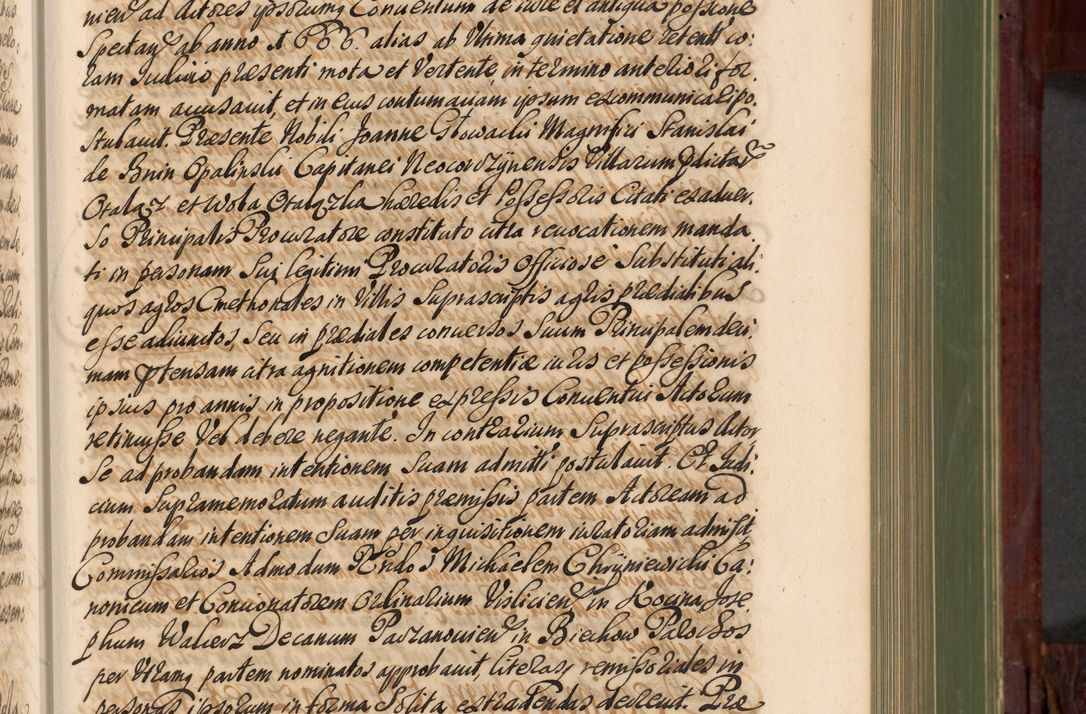 nien ad Actores ipsorumq Conventum de iure et antiqua possione
Spectan ab anno 1666. alias ab Ultima quietatione retenti co:
ram Iudicio præsenti mota et Vertente in termino anteriori for,
matam accusavit, et in eius contumaciam ipsum excommunicari po,
stulavit. Præsente Nobili Joanne Głowacki Magnifici Stanislai
de Bnin Opalinski Capitanei Neocorczynensis Villarum pdictar
et Wola hæredis et Possessoris Citati ex adver,
so Principalis Procuratore constituto citra revocationem manda,
ti in personam sui legitimi Procuratoris officiose Substituti ali,
quos agros Cmethonales in Villis Suprascriptis agris prædialibus
esse adiunctos, seu in prædiales conversos Suum Principalem deci,
mam ptensam citra agnitionem competentiæ iuris et possessionis
ipsius pro annis in propositione expressis Conventui Actorum
retinuisse Vel debere negante. In contrarium Suprascriptus Actor
Se ad probandam intentionem Suam admitti postulavit. Et Iudi,
cium Supramemoratum auditis præmissis partem Actoream ad
probandam intentionem Suam per inquisitionem iuratoriam admisit
Commissarios Admodum Rndos Michaelem Chryniewicki Ca:
nonicum et Concionatorem Ordinarium Vislicien in Josę
phum Walierz Decanum Paczanovien in Biechow Parochos
per Utramq partem nominatos approbavit, literasq remissoriales in
personas ipsorum in forma Solita extradendas decrevit. Præ